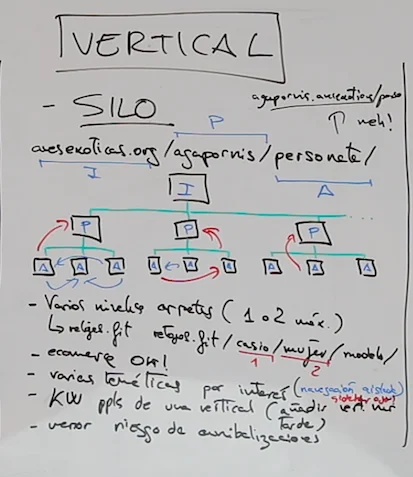 VERTICAL
- SILO
agapornis.avesexoticas/perso
↑ meh!
P
avesexoticas.org/agapornis/personata/
I
A
I
P P P
A A A A A A A A A
- Varios niveles carpetas (1 o 2 máx.)
↳ relojes.fit relojes.fit/casio/mujer/modelo/
1 2
- ecommerce OK!
- varias temáticas por interés (navegación aislada
- KW ppls de una vertical (añadir vert.
tarde)
- menor riesgo de canibalizaciones